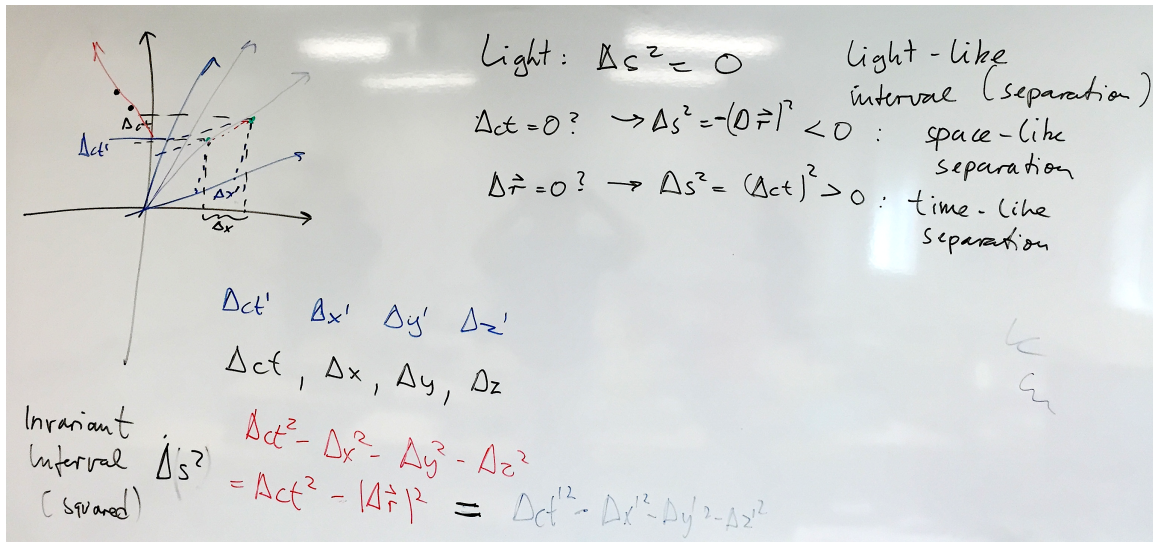 Light: Δs² = 0
Light-like
interval (separation)
Δct = 0? → Δs² = -(Δr⃗)² < 0 :
space-like
separation
Δr⃗ = 0? → Δs² = (Δct)² > 0 :
time-like
separation
Δct
Δct'
Δx'
Δx
Δct' Δx' Δy' Δz'
Δct , Δx , Δy , Δz
Invariant
Interval Δs²
(squared)
Δct² - Δx² - Δy² - Δz²
= Δct² - |Δr⃗|² = Δct'² - Δx'² - Δy'² - Δz'²